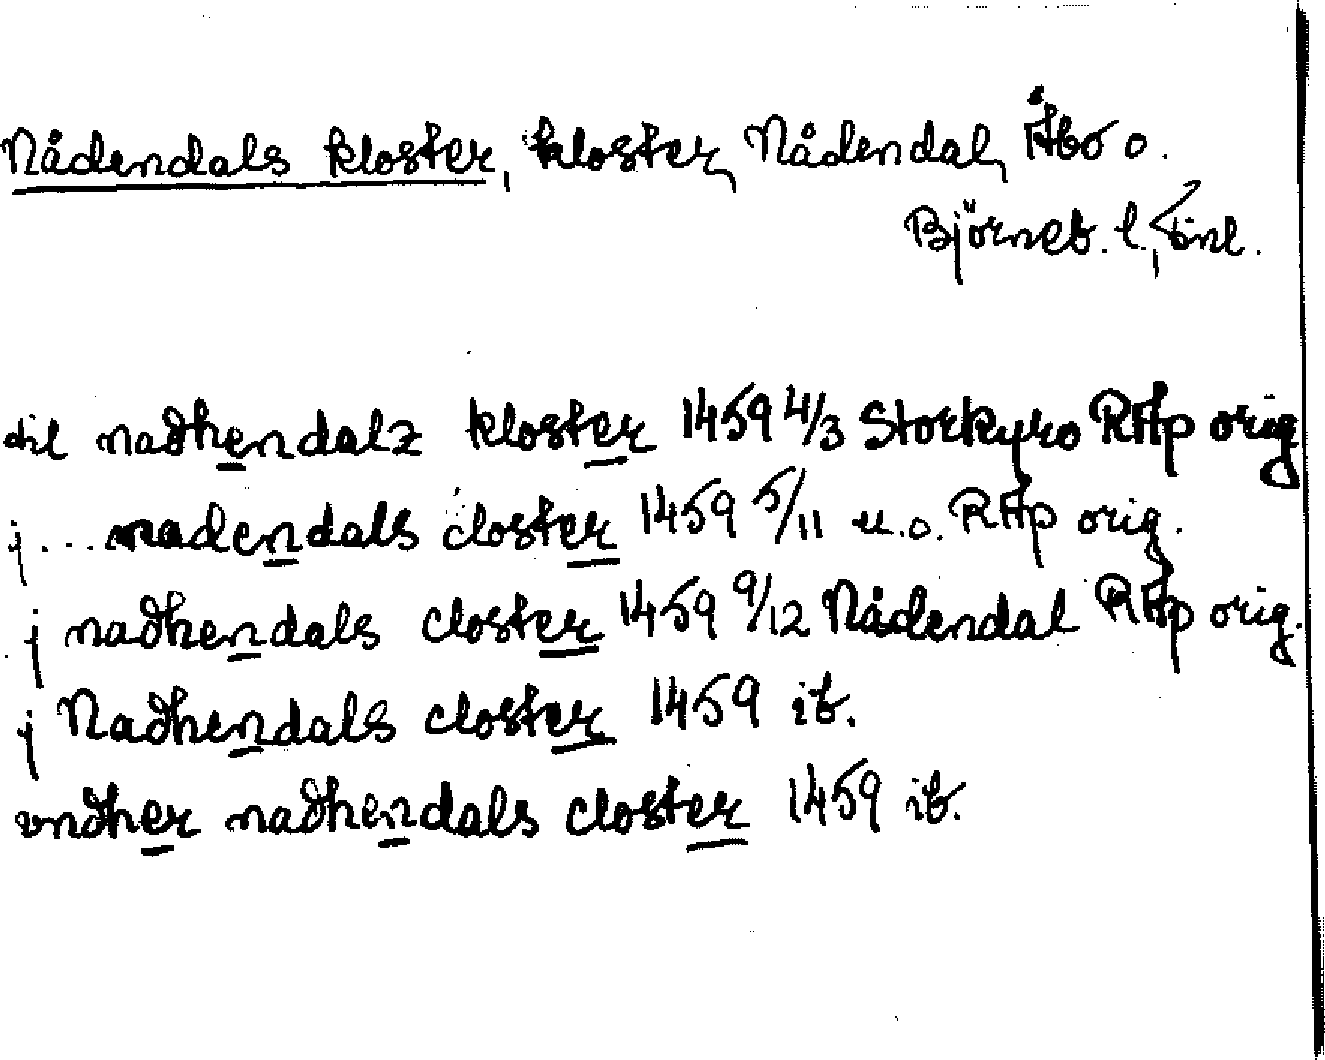 Nådendals kloster, kloster, Nådendal, Åbo o.
Björneb. l., Finl.
til nadhendalz kloster 1459 4/3 Storkyro RAp orig
j ... nadendals closter 1459 5/11 u.o. RAp orig.
j nadhendals closter 1459 9/12 Nådendal RAp orig.
j Nadhendals closter 1459 ib.
vndher nadhendals closter 1459 ib.